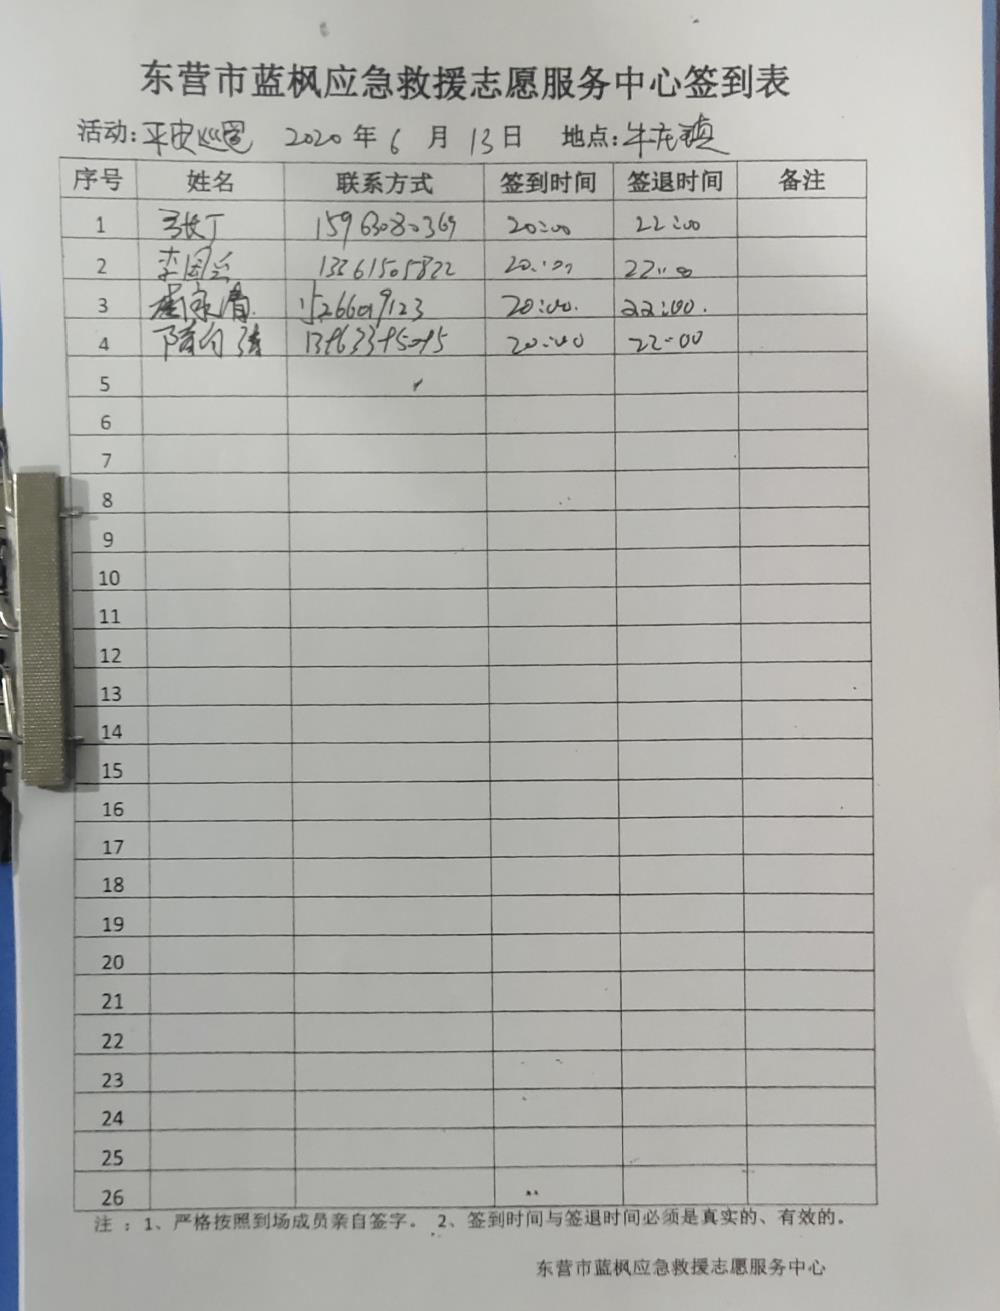 东营市蓝枫应急救援志愿服务中心签到表
活动:平安巡逻 2020年6月13日 地点:牛庄镇
序号 姓名 联系方式 签到时间 签退时间 备注
1 张丁 15963080369 20:00 22:00
2 李国兰 13261505822 20:00 22:00
3 家清 20:00. 22:00.
4 20:00 22:00
5
6
7
8
9
10
11
12
13
14
15
16
17
18
19
20
21
22
23
24
25
26
注：1、严格按照到场成员亲自签字。 2、签到时间与签退时间必须是真实的、有效的。
东营市蓝枫应急救援志愿服务中心